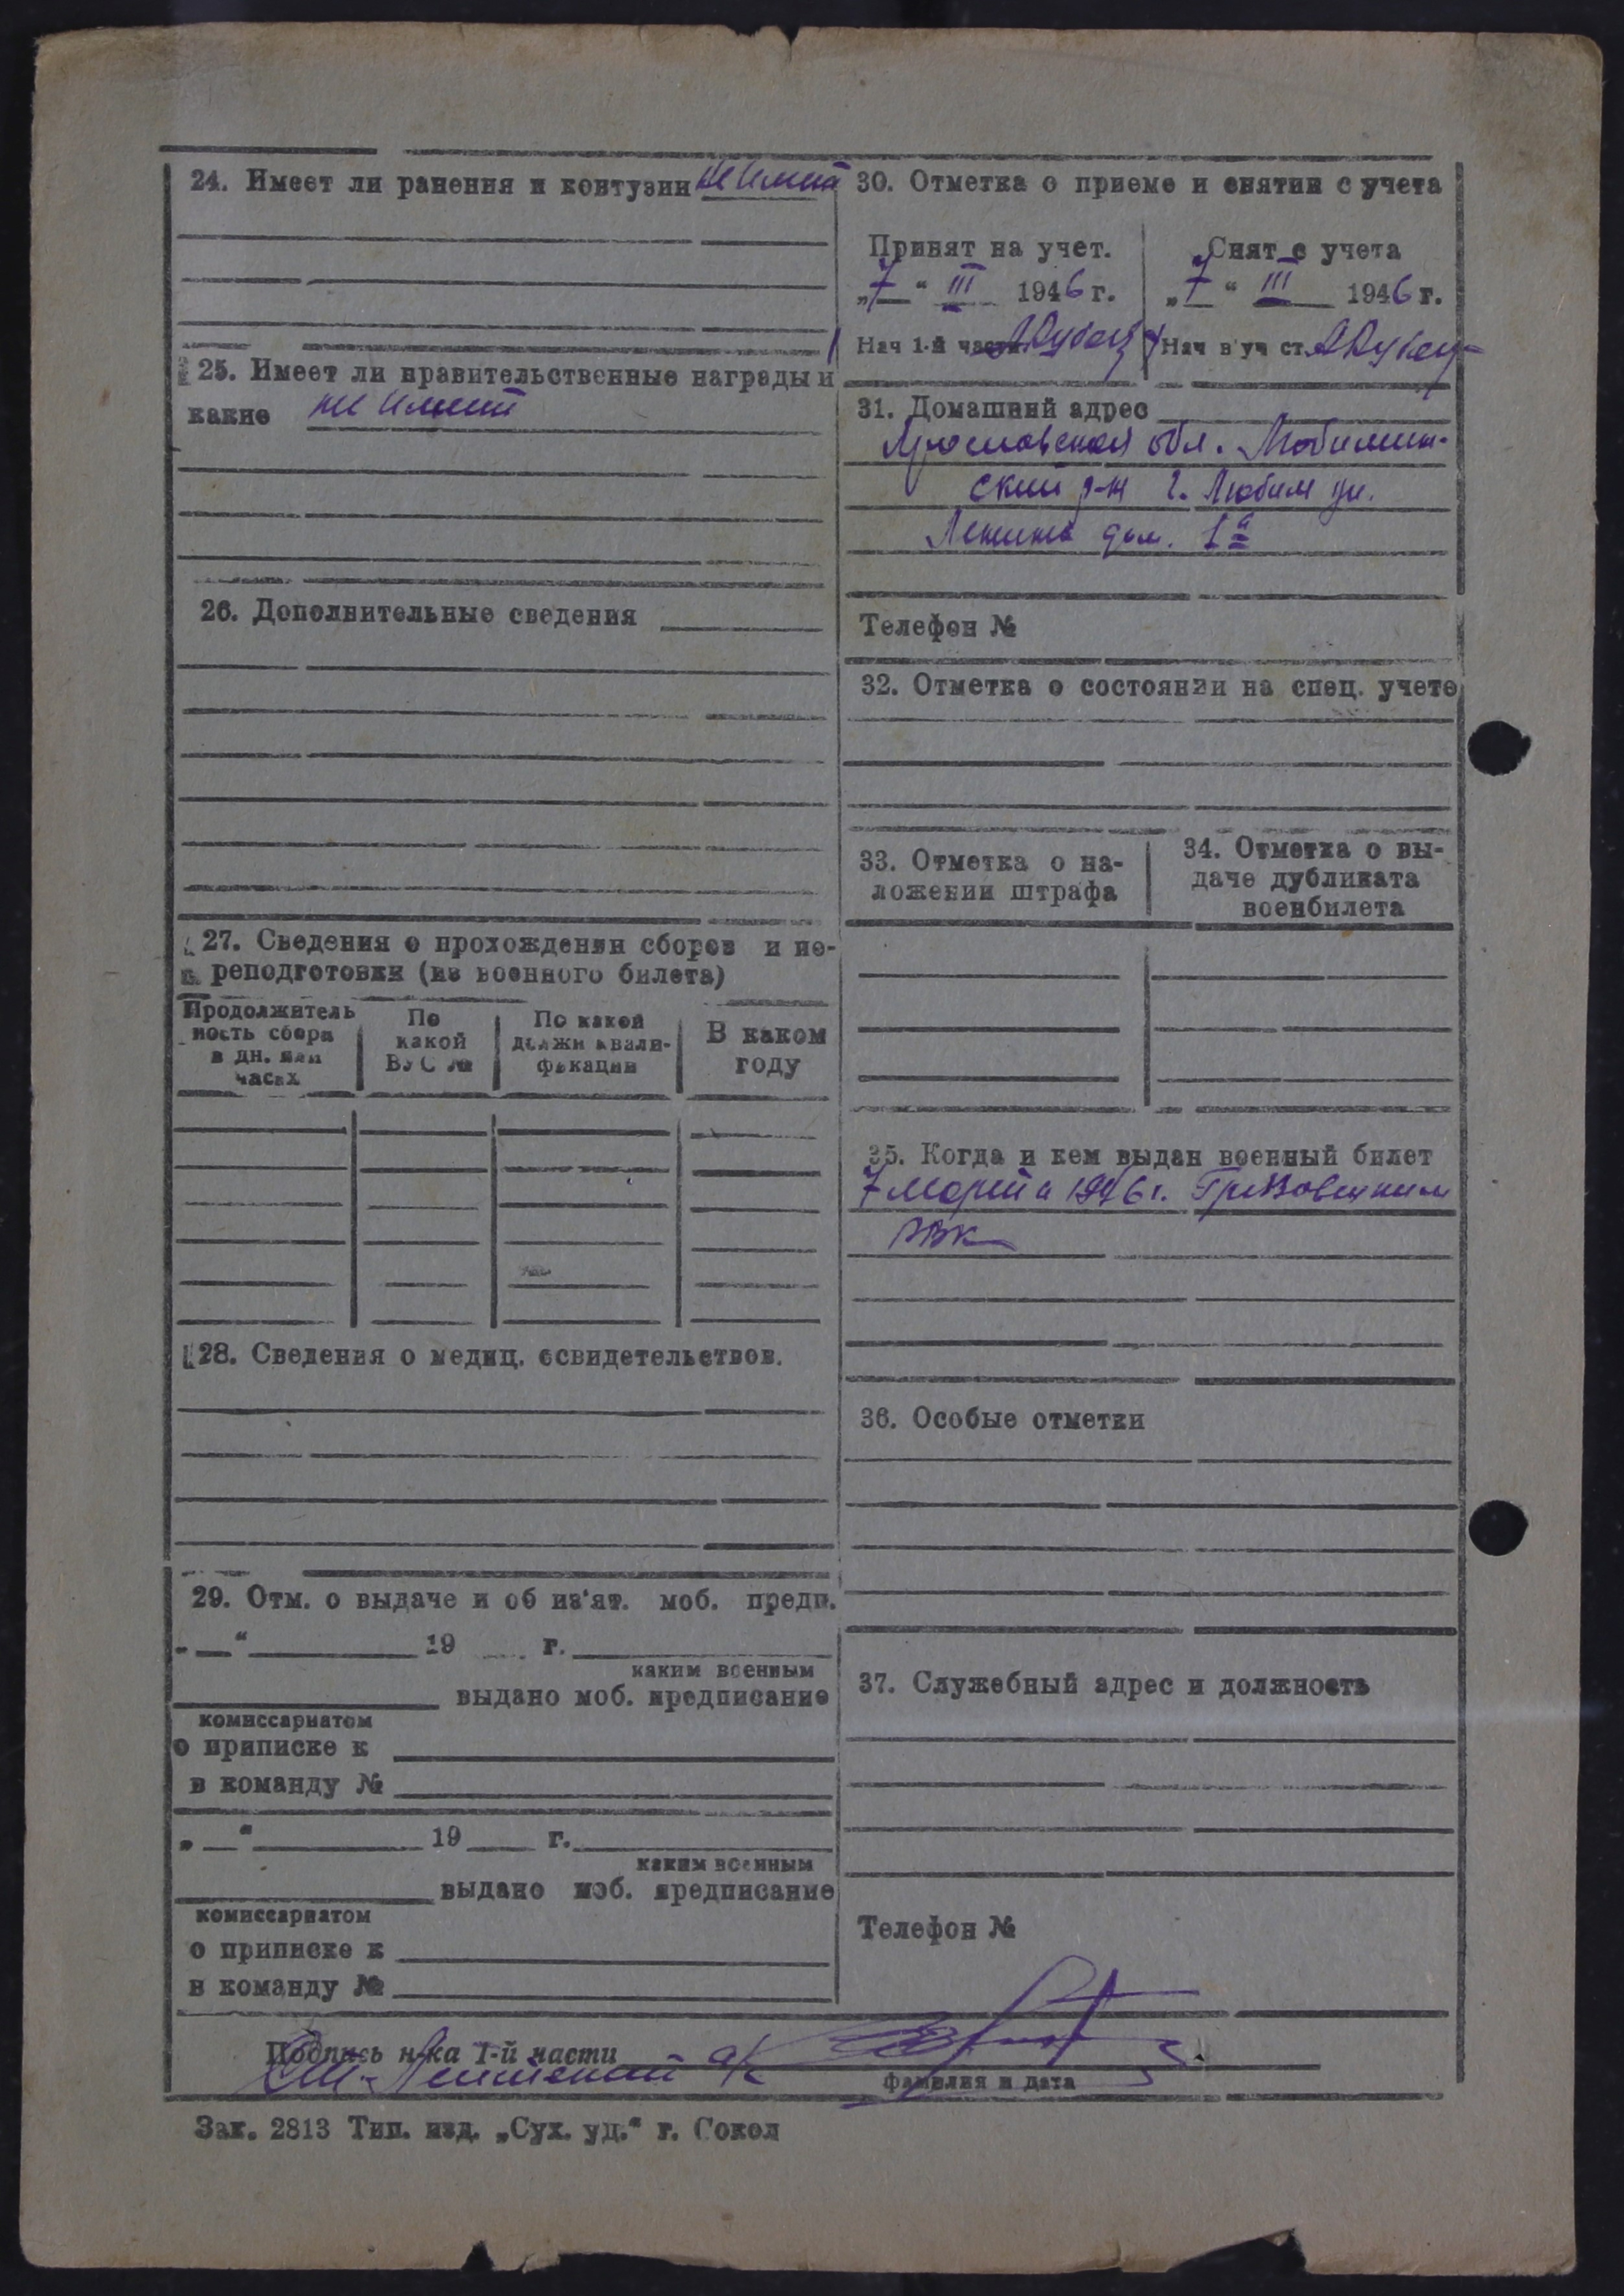 24. Имеет ли ранения и контузии не имеет
25. Имеет ли правительственные награды и
какие не имеет
26. Дополнительные сведения
27. Сведения о прохождении сборов и пе-
реподготовки (из военного билета)
Продолжитель
ность сбора
в дн. или
часах
По
какой
ВУС №
По какой
должн квали-
фикации
В каком
году
28. Сведения о медиц. освидетельствов.
29. Отм. о выдаче и об из'ят. моб. предп.
„ “ 19 г.
каким военным
выдано моб. предписание
комиссариатом
о приписке к
в команду №
„ “ 19 г.
каким военным
выдано моб. предписание
комиссариатом
о приписке к
в команду №
30. Отметка о приеме и снятии с учета
Принят на учет.
„7“ III 1946 г.
Нач 1-й части
Снят с учета
„7“ III 1946 г.
Нач в уч ст.
31. Домашний адрес
Ярославская обл. Любимин-
ский р-н г. Любим ул.
Ленина дом. 1а
Телефон №
32. Отметка о состоянии на спец. учете
33. Отметка о на-
ложении штрафа
34. Отметка о вы-
даче дубликата
военбилета
35. Когда и кем выдан военный билет
7 марта 1946 г. Грязовецким
РВК
36. Особые отметки
37. Служебный адрес и должность
Телефон №
Подпись н-ка 1-й части
фамилия и дата
Зак. 2813 Тип. изд. „Сух. уд.“ г. Сокол